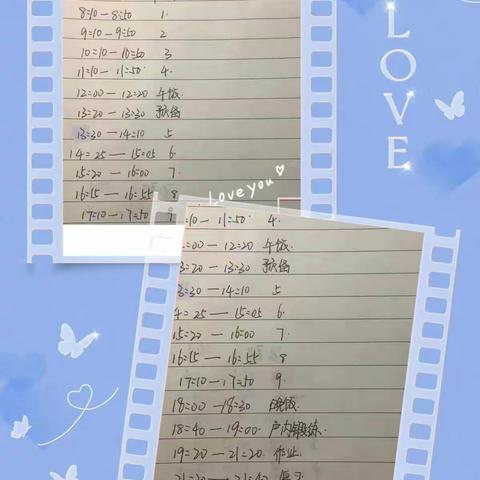 8:10 — 8:50 1.
9:10 — 9:50 2
10:10 — 10:50 3
11:10 — 11:50 4.
12:00 — 12:20 午饭.
13:20 — 13:30 预备
13:30 — 14:10 5
14:25 — 15:05 6.
15:20 — 16:00 7.
16:15 — 16:55 8
17:10 — 17:50
LOVE
Love you
:10 — 11:50 4.
:00 — 12:20 午饭.
3:20 — 13:30 预备
3:30 — 14:10 5
4:25 — 15:05 6.
15:20 — 16:00 7.
16:15 — 16:55 8
17:10 — 17:50 9.
18:00 — 18:30 晚饭.
18:40 — 19:00 户内锻炼.
19:20 — 21:20 作业.
21:20 — 21:40 复习